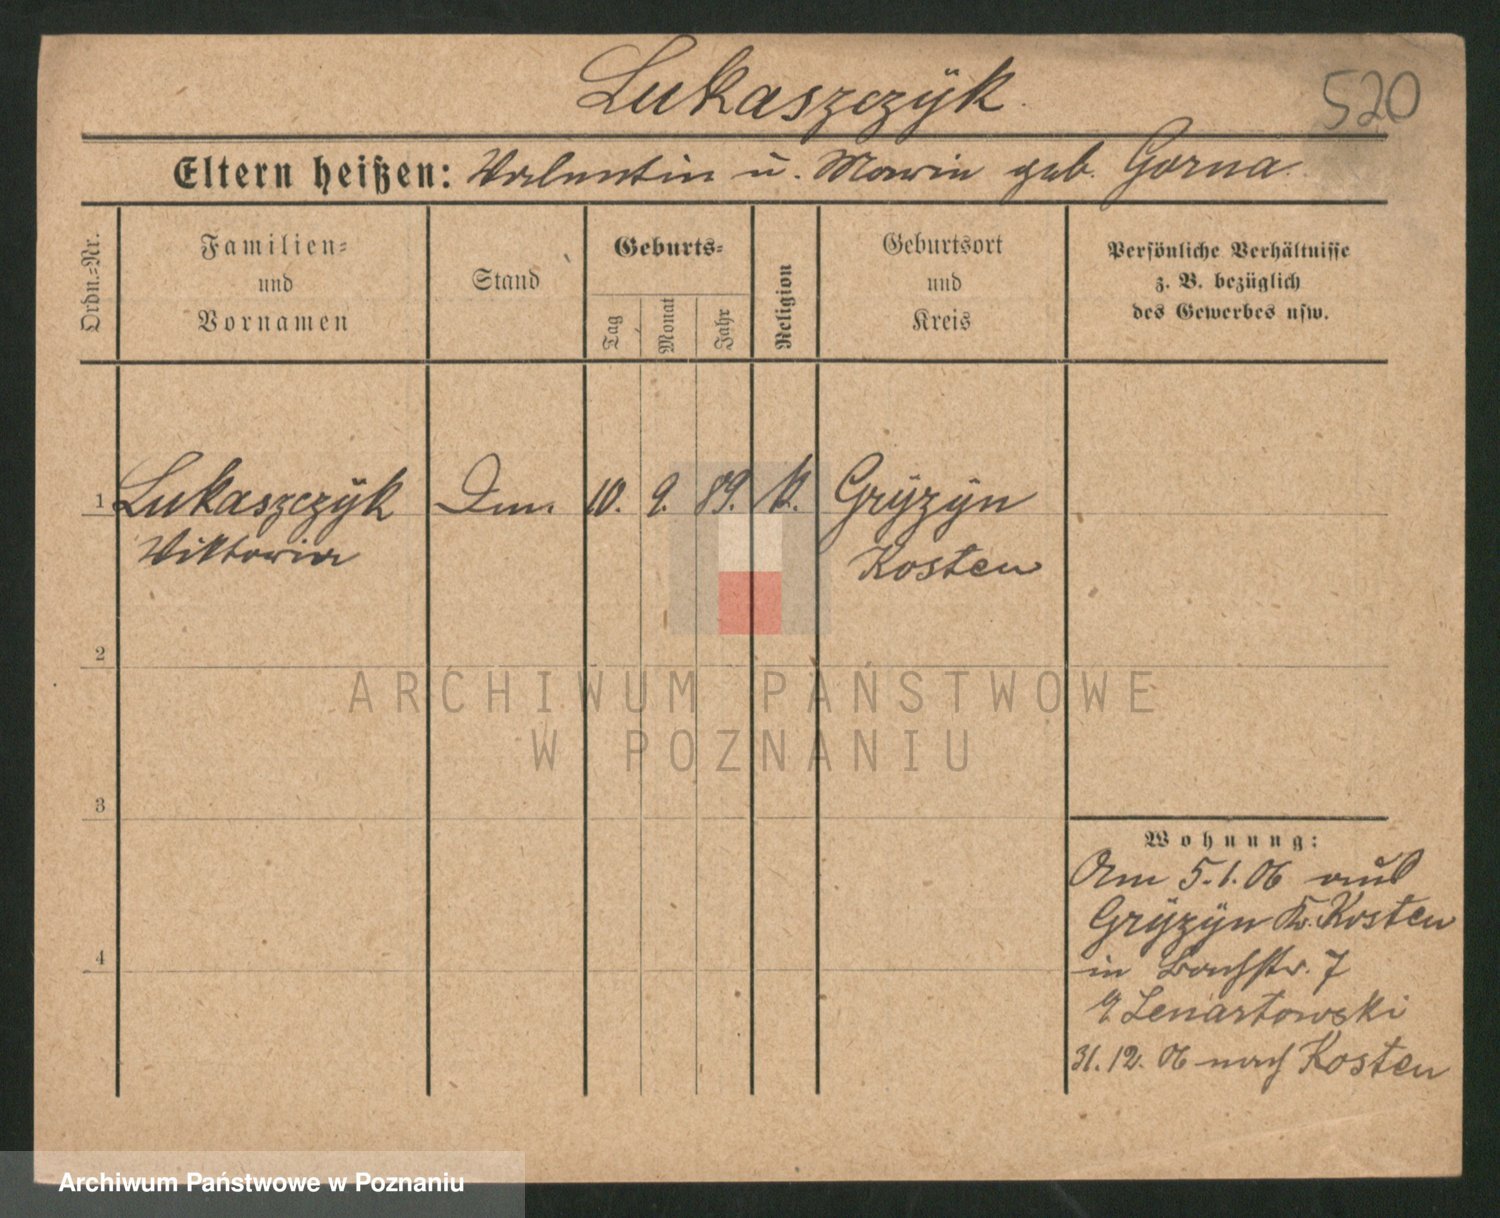 Lukaszczÿk
520
Eltern heißen: Valentin u. Maria geb. Gorna
Ordn.-Nr.
Familien-
und
Vornamen
Stand
Geburts-
Tag
Monat
Jahr
Religion
Geburtsort
und
Kreis
Persönliche Verhältnisse
z. B. bezüglich
des Gewerbes usw.
1
Lukaszczÿk
10.
9.
89.
k.
Grÿzÿn
Viktoria
Kosten
2
ARCHIWUM PAŃSTWOWE
W POZNANIU
3
4
Wohnung:
Am 5.1.06 aus
Grÿzÿn Kr. Kosten
in Bachstr. 7
Lenartowski
31.12.06 nach Kosten
Archiwum Państwowe w Poznaniu